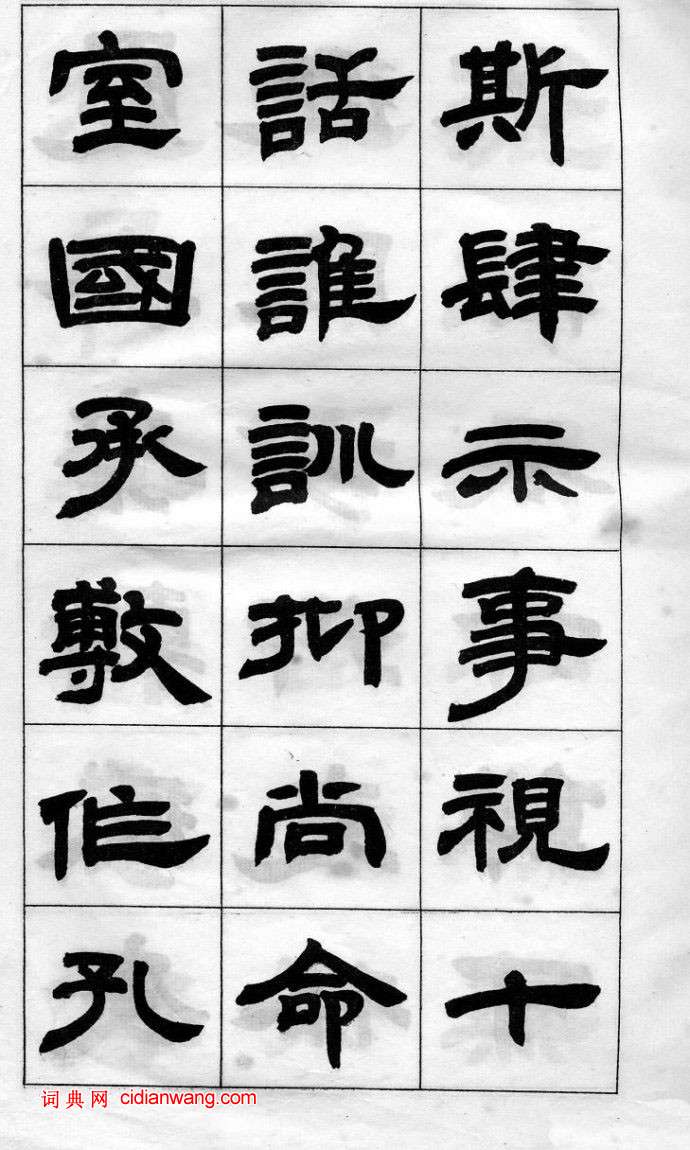 斯肆示事視十
話誰訓抑尚命
室國承敷作孔
词典网 cidianwang.com